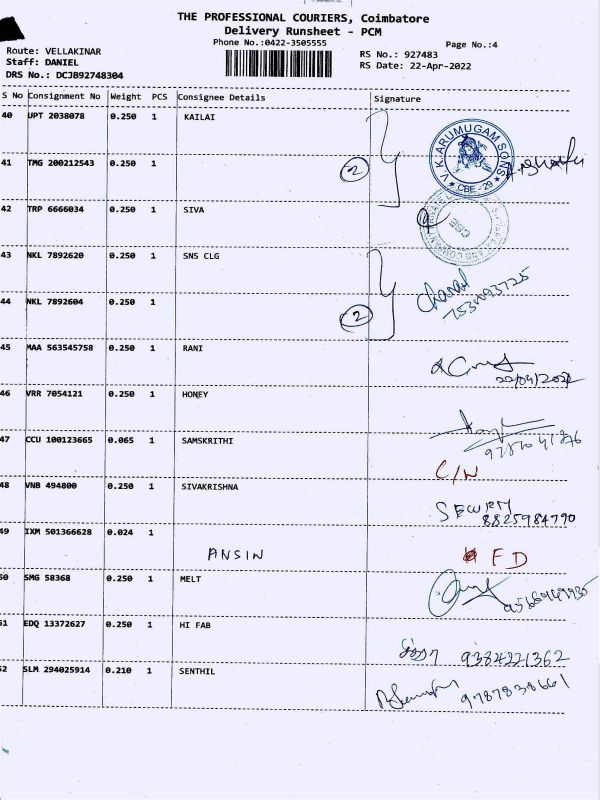 THE PROFESSIONAL COURIERS, Coimbatore
Delivery Runsheet - PCM
Phone No.:0422-3505555
Page No.:4
Route: VELLAKINAR
Staff: DANIEL
DRS No.: DCJB92748304
RS No.: 927483
RS Date: 22-Apr-2022
S No Consignment No Weight PCS Consignee Details Signature
40 UPT 2038078 0.250 1 KAILAI
V. K. ARUMUGAM SONS
★ CBE - 29 ★
41 TMG 200212543 0.250 1
2
42 TRP 6666034 0.250 1 SIVA
CBE
43 NKL 7892620 0.250 1 SNS CLG
44 NKL 7892604 0.250 1
2
45 MAA 563545758 0.250 1 RANI
22/04/2022
46 VRR 7054121 0.250 1 HONEY
47 CCU 100123665 0.065 1 SAMSKRITHI
C/N
48 VNB 494800 0.250 1 SIVAKRISHNA
8825984790
49 IXM 501366628 0.024 1
ANSIN
FD
50 SMG 58368 0.250 1 MELT
51 EDQ 13372627 0.250 1 HI FAB
9384221362
52 SLM 294025914 0.210 1 SENTHIL
9787838661